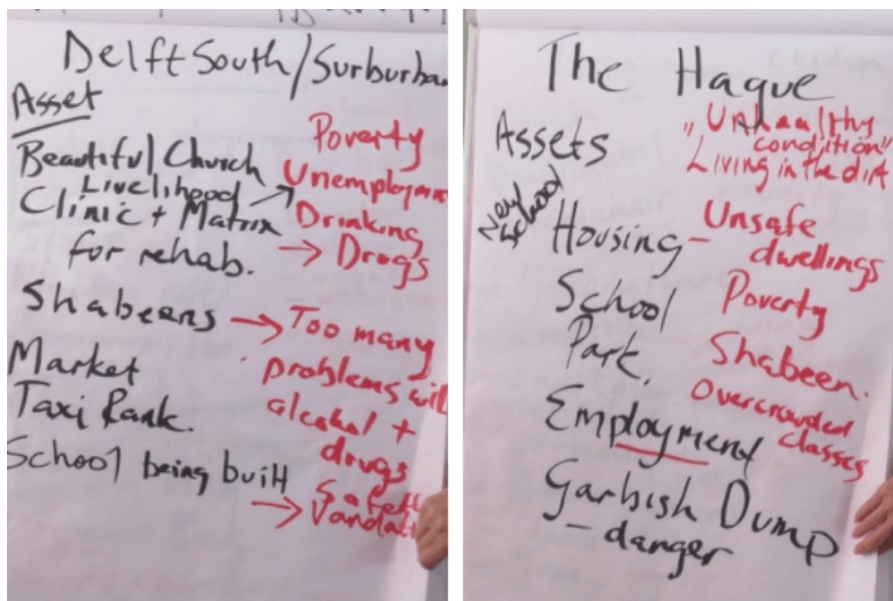 Delft South/Surburba
Asset
Beautiful Church
Livelihood
Clinic + Matrix
for rehab.
Shabeens →
Market
Taxi Rank.
School being built
Poverty
Unemploym
Drinking
→ Drugs
Too many
problems wit
alcohol +
drugs
→ Safet
Vandali
The Hague
Assets
New
School
Housing –
School
Park.
Employment
Garbish Dump
– danger
"Unhealthy
condition"
Living in the dirt
Unsafe
dwellings
Poverty
Shabeen.
overcrowded
classes